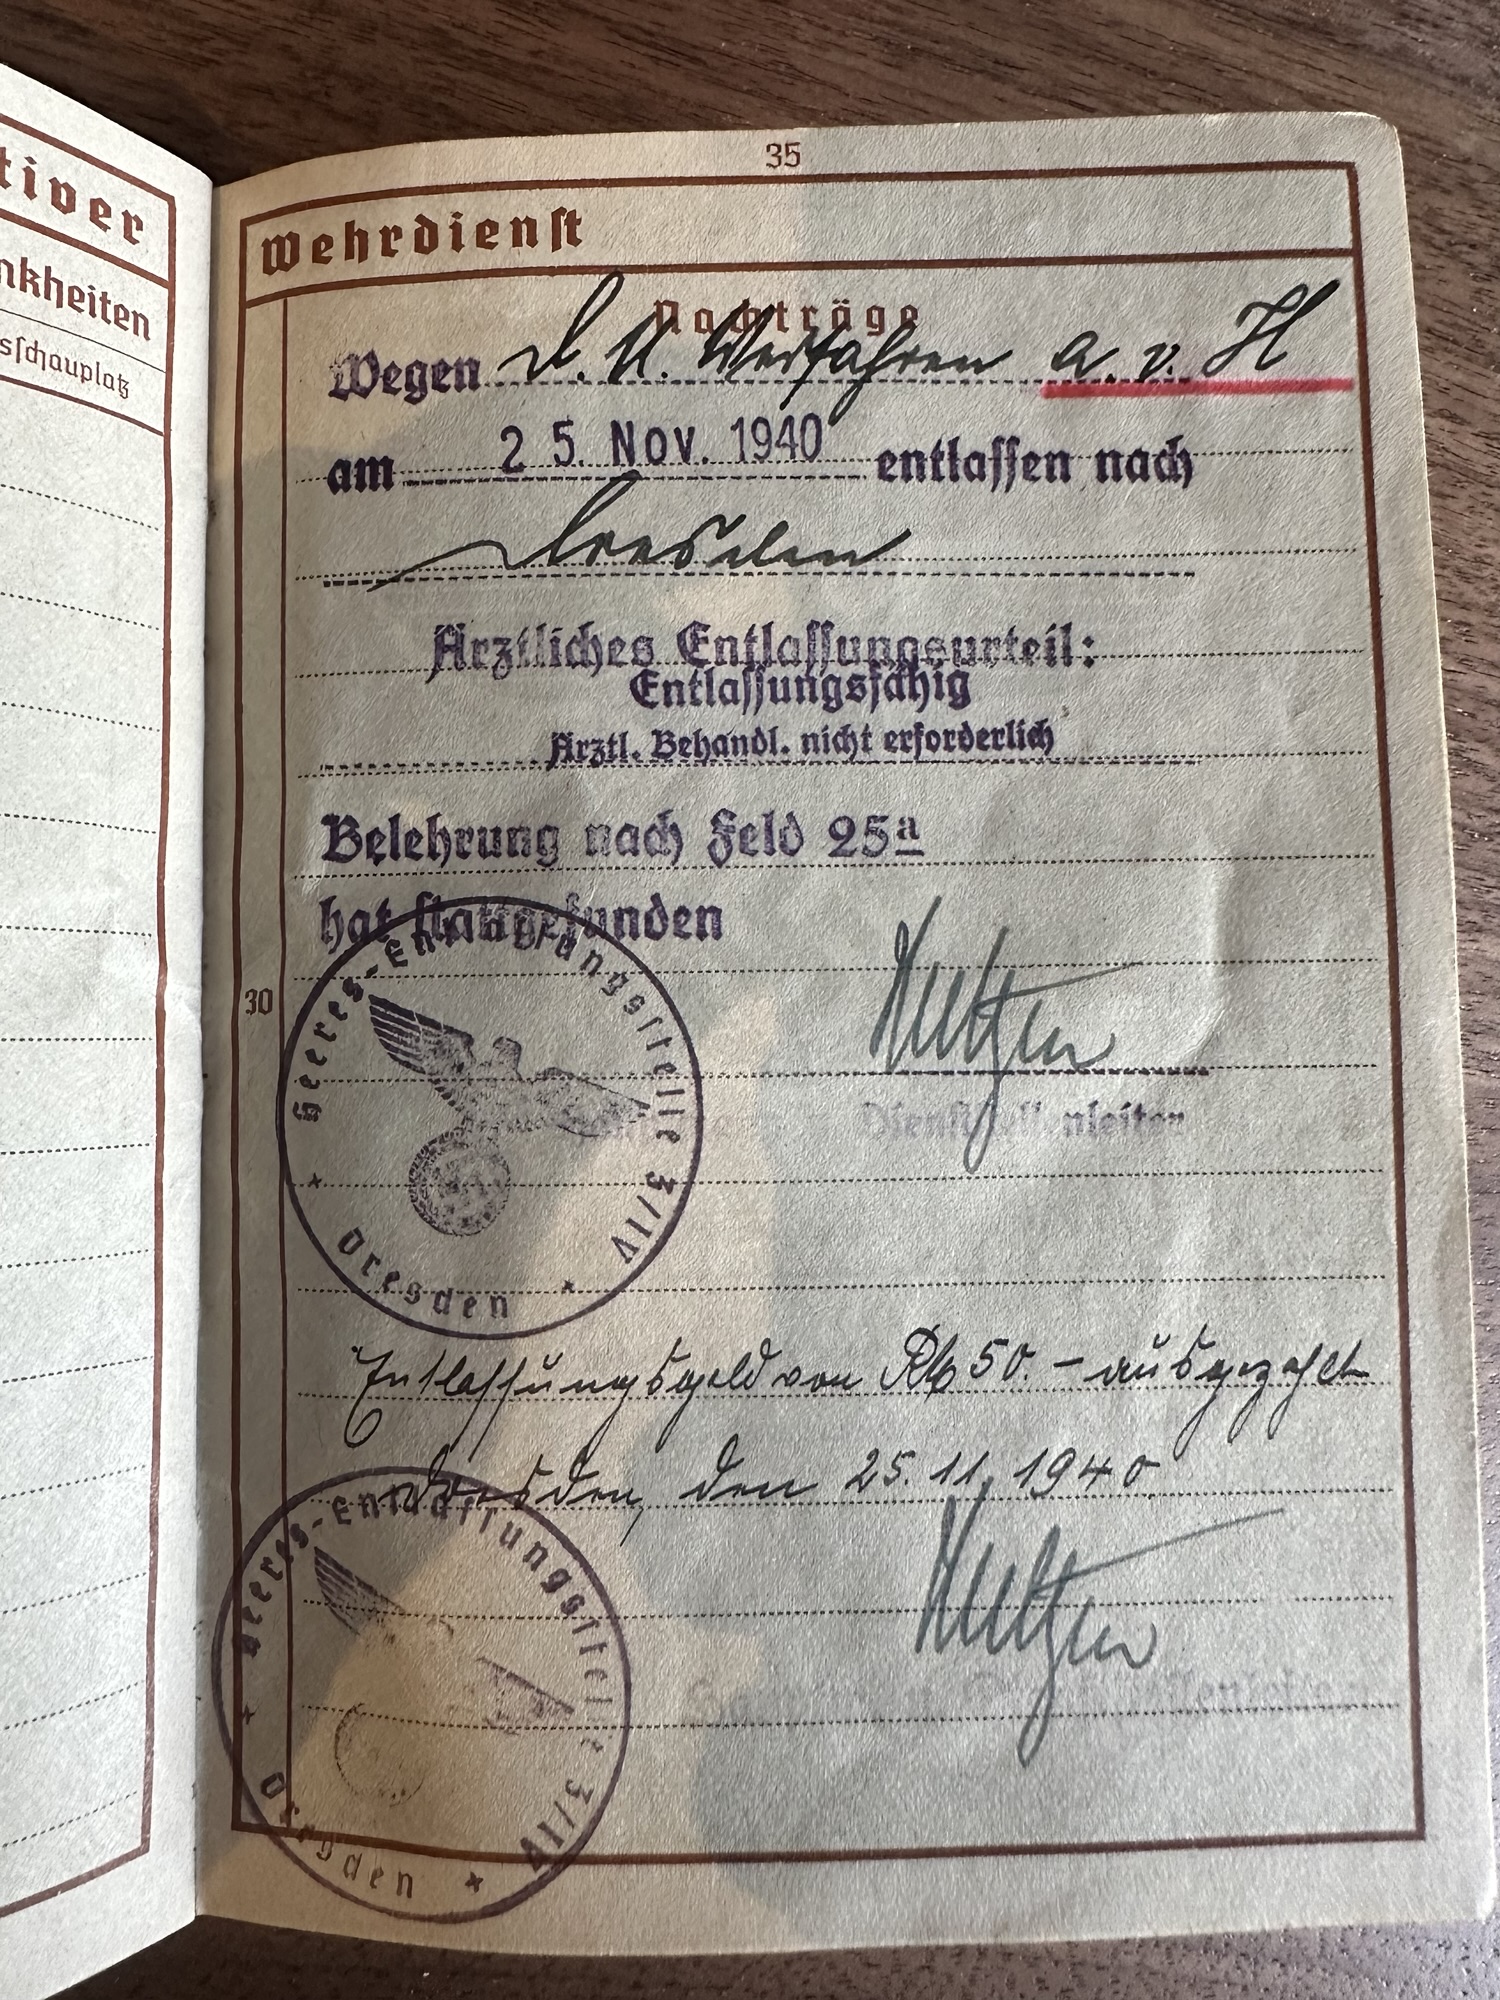 tiver
nkheiten
sschauplatz
35
Wehrdienst
Nachträge
Wegen D. U. Verfahren a. v. H
am 25. Nov. 1940 entlassen nach
Dresden
Ärztliches Entlassungsurteil:
Entlassungsfähig
Ärztl. Behandl. nicht erforderlich
Belehrung nach Feld 25a
hat stattgefunden
30
Heeres-Entlassungsstelle 3/IV
Dresden
Dienststellenleiter
Entlassungsgeld von RM 50.- ausgezahlt
Dresden, den 25.11.1940
Heeres-Entlassungsstelle 3/IV
Dresden